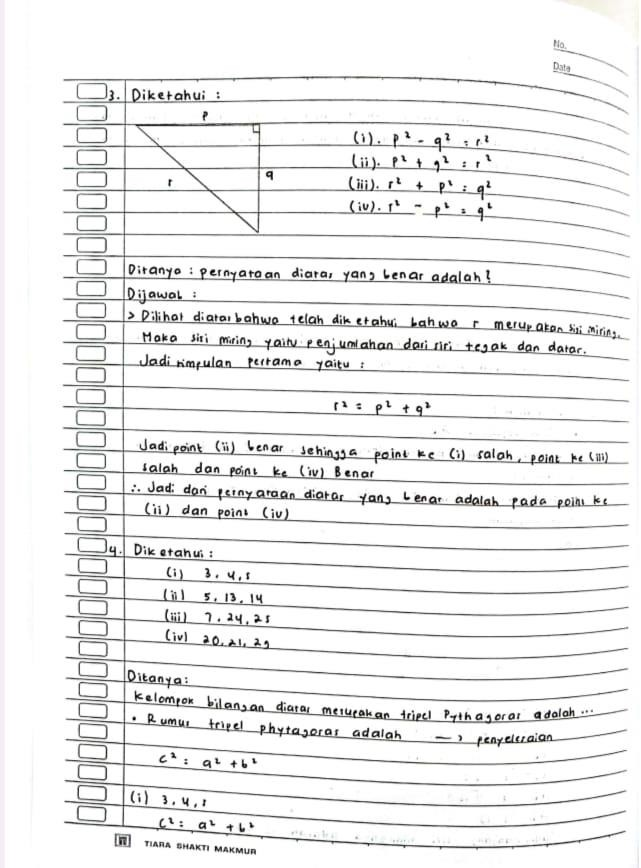 No.
Date
3. Diketahui :
p
(i). p² - q² = r²
(ii). p² + q² = r²
r
q
(iii). r² + p² = q²
(iv). r² - p² = q²
Ditanya : pernyataan diatas yang benar adalah?
Dijawab :
> Dilihat diatas bahwa telah diketahui bahwa r merupakan sisi miring.
Maka sisi miring yaitu penjumlahan dari sisi tegak dan datar.
Jadi simpulan pertama yaitu :
r² = p² + q²
Jadi point (ii) benar sehingga point ke (i) salah, point ke (iii)
salah dan point ke (iv) Benar
∴ Jadi dari pernyataan diatas yang benar adalah pada point ke
(ii) dan point (iv)
4. Diketahui :
(i) 3, 4, 5
(ii) 5, 13, 14
(iii) 7, 24, 25
(iv) 20, 21, 29
Ditanya :
Kelompok bilangan diatas merupakan tripel Pythagoras adalah ...
• Rumus tripel phytagoras adalah —> penyelesaian
c² = a² + b²
(i) 3, 4, 5
c² = a² + b²
TIARA SHAKTI MAKMUR